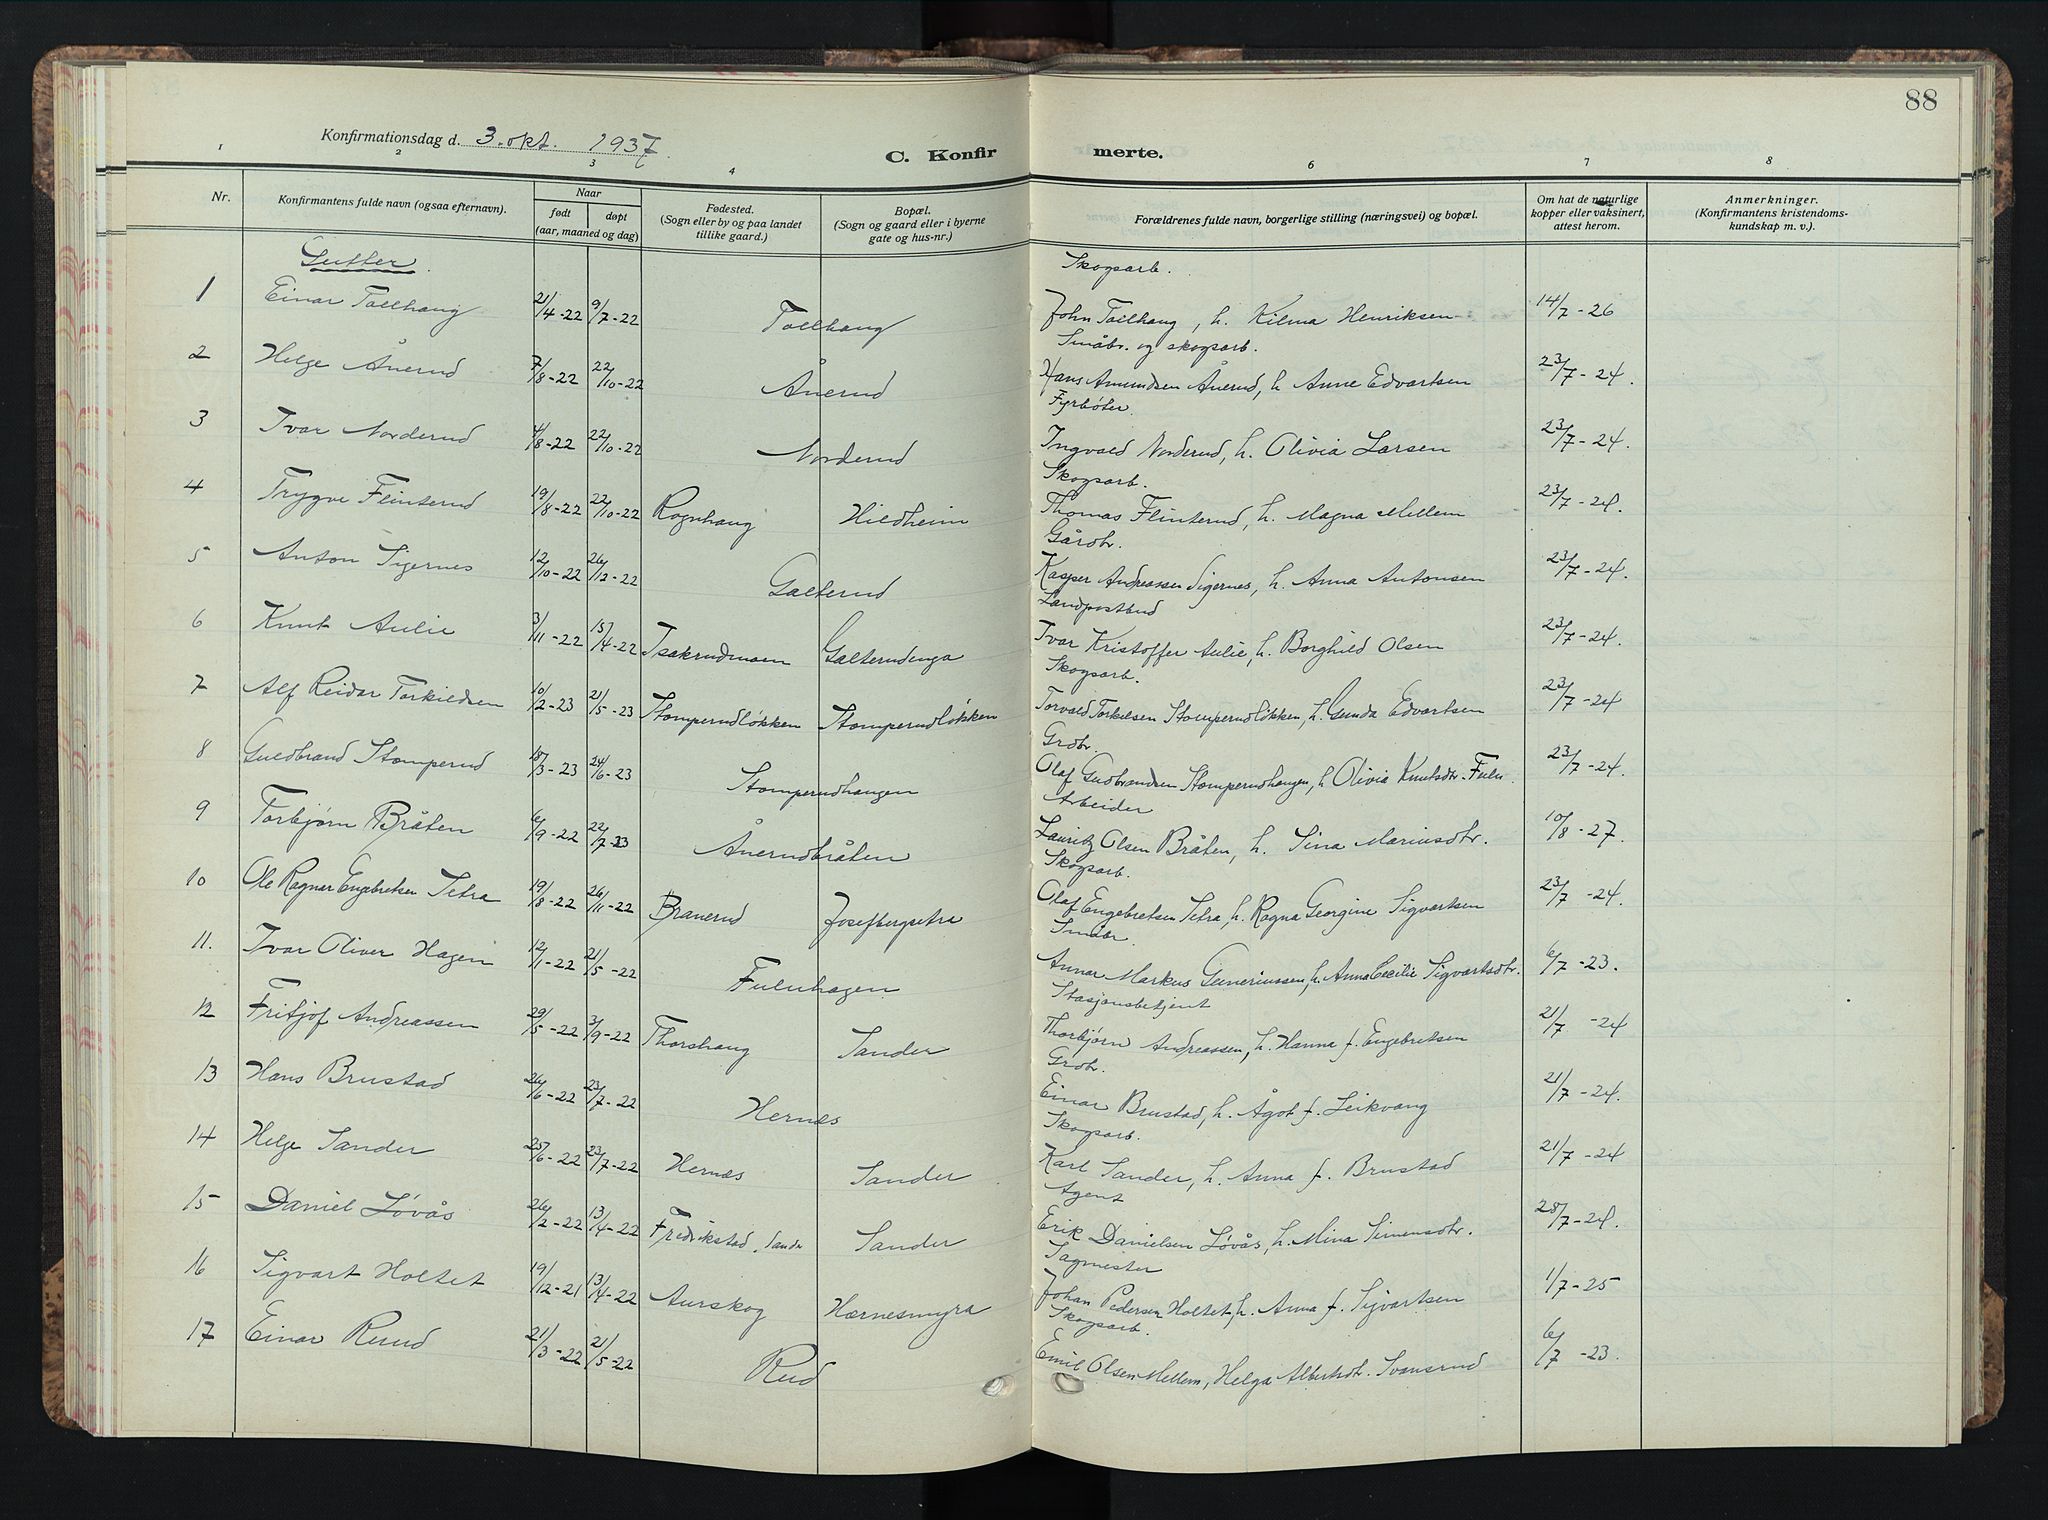 88
Konfirmationsdag d. 3. okt. 1937
C. Konfirmerte.
1 2 3 4 6 7 8
Nr. | Konfirmantens fulde navn (ogsaa efternavn). | Naar født | døpt (aar, maaned og dag) | Fødested. (Sogn eller by og paa landet tillike gaard.) | Bopæl. (Sogn og gaard eller i byerne gate og hus-nr.) | Forældrenes fulde navn, borgerlige stilling (næringsvei) og bopæl. | Om hat de naturlige kopper eller vaksinert, attest herom. | Anmerkninger. (Konfirmantens kristendomskundskap m. v.).
Gutter. Skogsarb.
1 Einar Tallhaug 21/4-22 9/7-22 Tallhaug John Tallhaug, h. Kilma Henriksen 14/7-26
Småbr. og skogsarb.
2 Helge Ånerud 7/8-22 22/10-22 Ånerud Hans Amundsen Ånerud, h. Anne Edvartsen 23/7-24.
Fyrbøter.
3 Ivar Norderud 4/8-22 22/10-22 Norderud Ingvald Norderud, h. Olivia Larsen 23/7-24.
Skogsarb.
4 Trygve Flinterud 19/8-22 22/10-22 Rognhaug Hildheim Thomas Flinterud, h. Magna Mellem 23/7-24.
Gårdbr.
5 Anton Sigernes 12/10-22 26/12-22 Galterud Kasper Andreassen Sigernes, h. Anna Antonsen 23/7-24.
Landpostbud
6 Knut Aulie 3/11-22 15/4-22 Isakrudmoen Galterudenga Ivar Kristoffer Aulie, h. Borghild Olsen 23/7-24.
Skogsarb.
7 Alf Reidar Torkildsen 10/2-23 21/5-23 Stomperudløkken Stomperudløkken Torvald Torkelsen Stomperudløkken, h. Gunda Edvartsen 23/7-24
Grdbr.
8 Guldbrand Stomperud 18/3-23 24/6-23 Stomperudhaugen Olaf Gudbrandsen Stomperudhaugen, h. Olivia Knutsdtr. Fulu 23/7-24.
Arbeider
9 Torbjørn Bråten 6/9-22 22/7-23 Ånerudbråten Lauritz Olsen Bråten, h. Sina Mariusdtr. 10/8-27.
Skogsarb.
10 Ole Ragnar Engebretsen Setra 19/8-22 26/11-22 Branerud Josefbergsetra Olaf Engebretsen Setra, h. Ragna Georgine Sigvartsen 23/7-24.
Småbr.
11. Ivar Oliver Hagen 12/1-22 21/5-22 Fuluhagen Annar Markus Guneriussen, h. Anna Cecilie Sigvartsdtr. 6/7-23.
Stasjonsbetjent
12 Fritjof Andreassen 29/5-22 3/9-22 Thorshaug Sander Thorbjørn Andreassen, h. Hanna f. Engebretsen 21/7-24
Grdbr.
13 Hans Brustad 26/6-22 23/7-22 Hernes Einar Brustad, h. Ågot f. Leikvang 21/7-24.
Skogsarb.
14 Helge Sander 25/6-22 23/7-22 Hernes Sander Karl Sander, h. Anna f. Brustad 21/7-24
Agent
15 Daniel Løvås 26/2-22 13/4-22 Fredrikstad, Sander Sander Erik Danielsen Løvås, h. Mina Simensdtr. 28/7-24.
Sagmester
16 Sigvart Holtet 19/12-21 13/4-22 Aurskog Hernesmyra Johan Pedersen Holtet, h. Anna f. Sigvartsen 1/7-25
Skogsarb.
17 Einar Ruud 21/3-22 21/5-22 Rud Emil Olsen Mellem, Helga Albertsdtr. Svansrud 6/7-23.